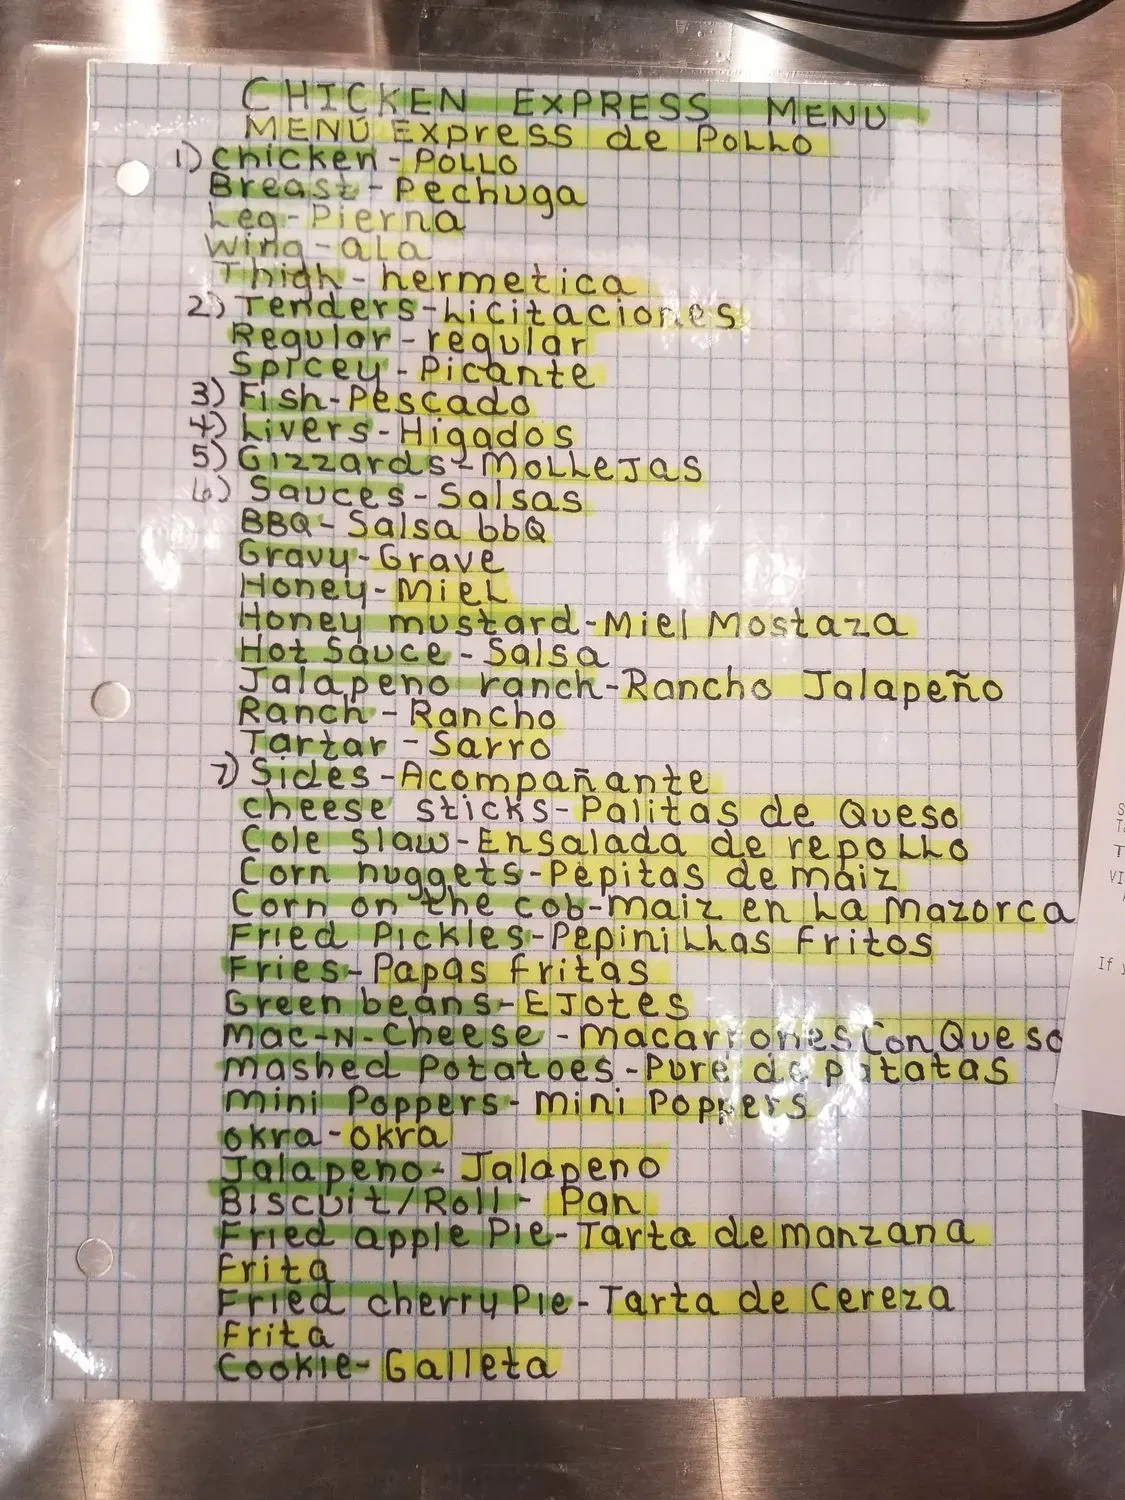 CHICKEN EXPRESS MENU
MENÚ Express de POLLO
1) Chicken - POLLO
Breast - Pechuga
Leg - Pierna
Wing - ala
Thigh - hermetica
2) Tenders - Licitaciones
Regular - regular
Spicey - Picante
3) Fish - Pescado
4) Livers - Higados
5) Gizzards - MOLLEJAS
6) Sauces - Salsas
BBQ - Salsa bbQ
Gravy - Grave
Honey - MieL
Honey mustard - Miel Mostaza
Hot Sauce - Salsa
Jalapeno ranch - Rancho Jalapeño
Ranch - Rancho
Tartar - Sarro
7) Sides - Acompañante
cheese sticks - Palitas de Queso
Cole slaw - Ensalada de repoLLo
Corn nuggets - Pepitas de maiz
Corn on the cob - maiz en La Mazorca
Fried Pickles - PepiniLLhas Fritos
Fries - Papas fritas
Green beans - EJOTES
Mac-N-Cheese - Macarrones Con Queso
Mashed Potatoes - Puré de patatas
Mini Poppers - Mini Poppers
Okra - Okra
Jalapeno - Jalapeno
Biscuit/Roll - Pan
Fried apple Pie - Tarta de manzana
Frita
Fried cherry Pie - Tarta de Cereza
Frita
Cookie - Galleta
If